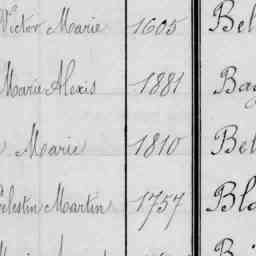 Victor Marie 1605 Bel
Marie Alexis 1881 Ba
Marie 1810 Bel
Celestin Martin 1757 Bla